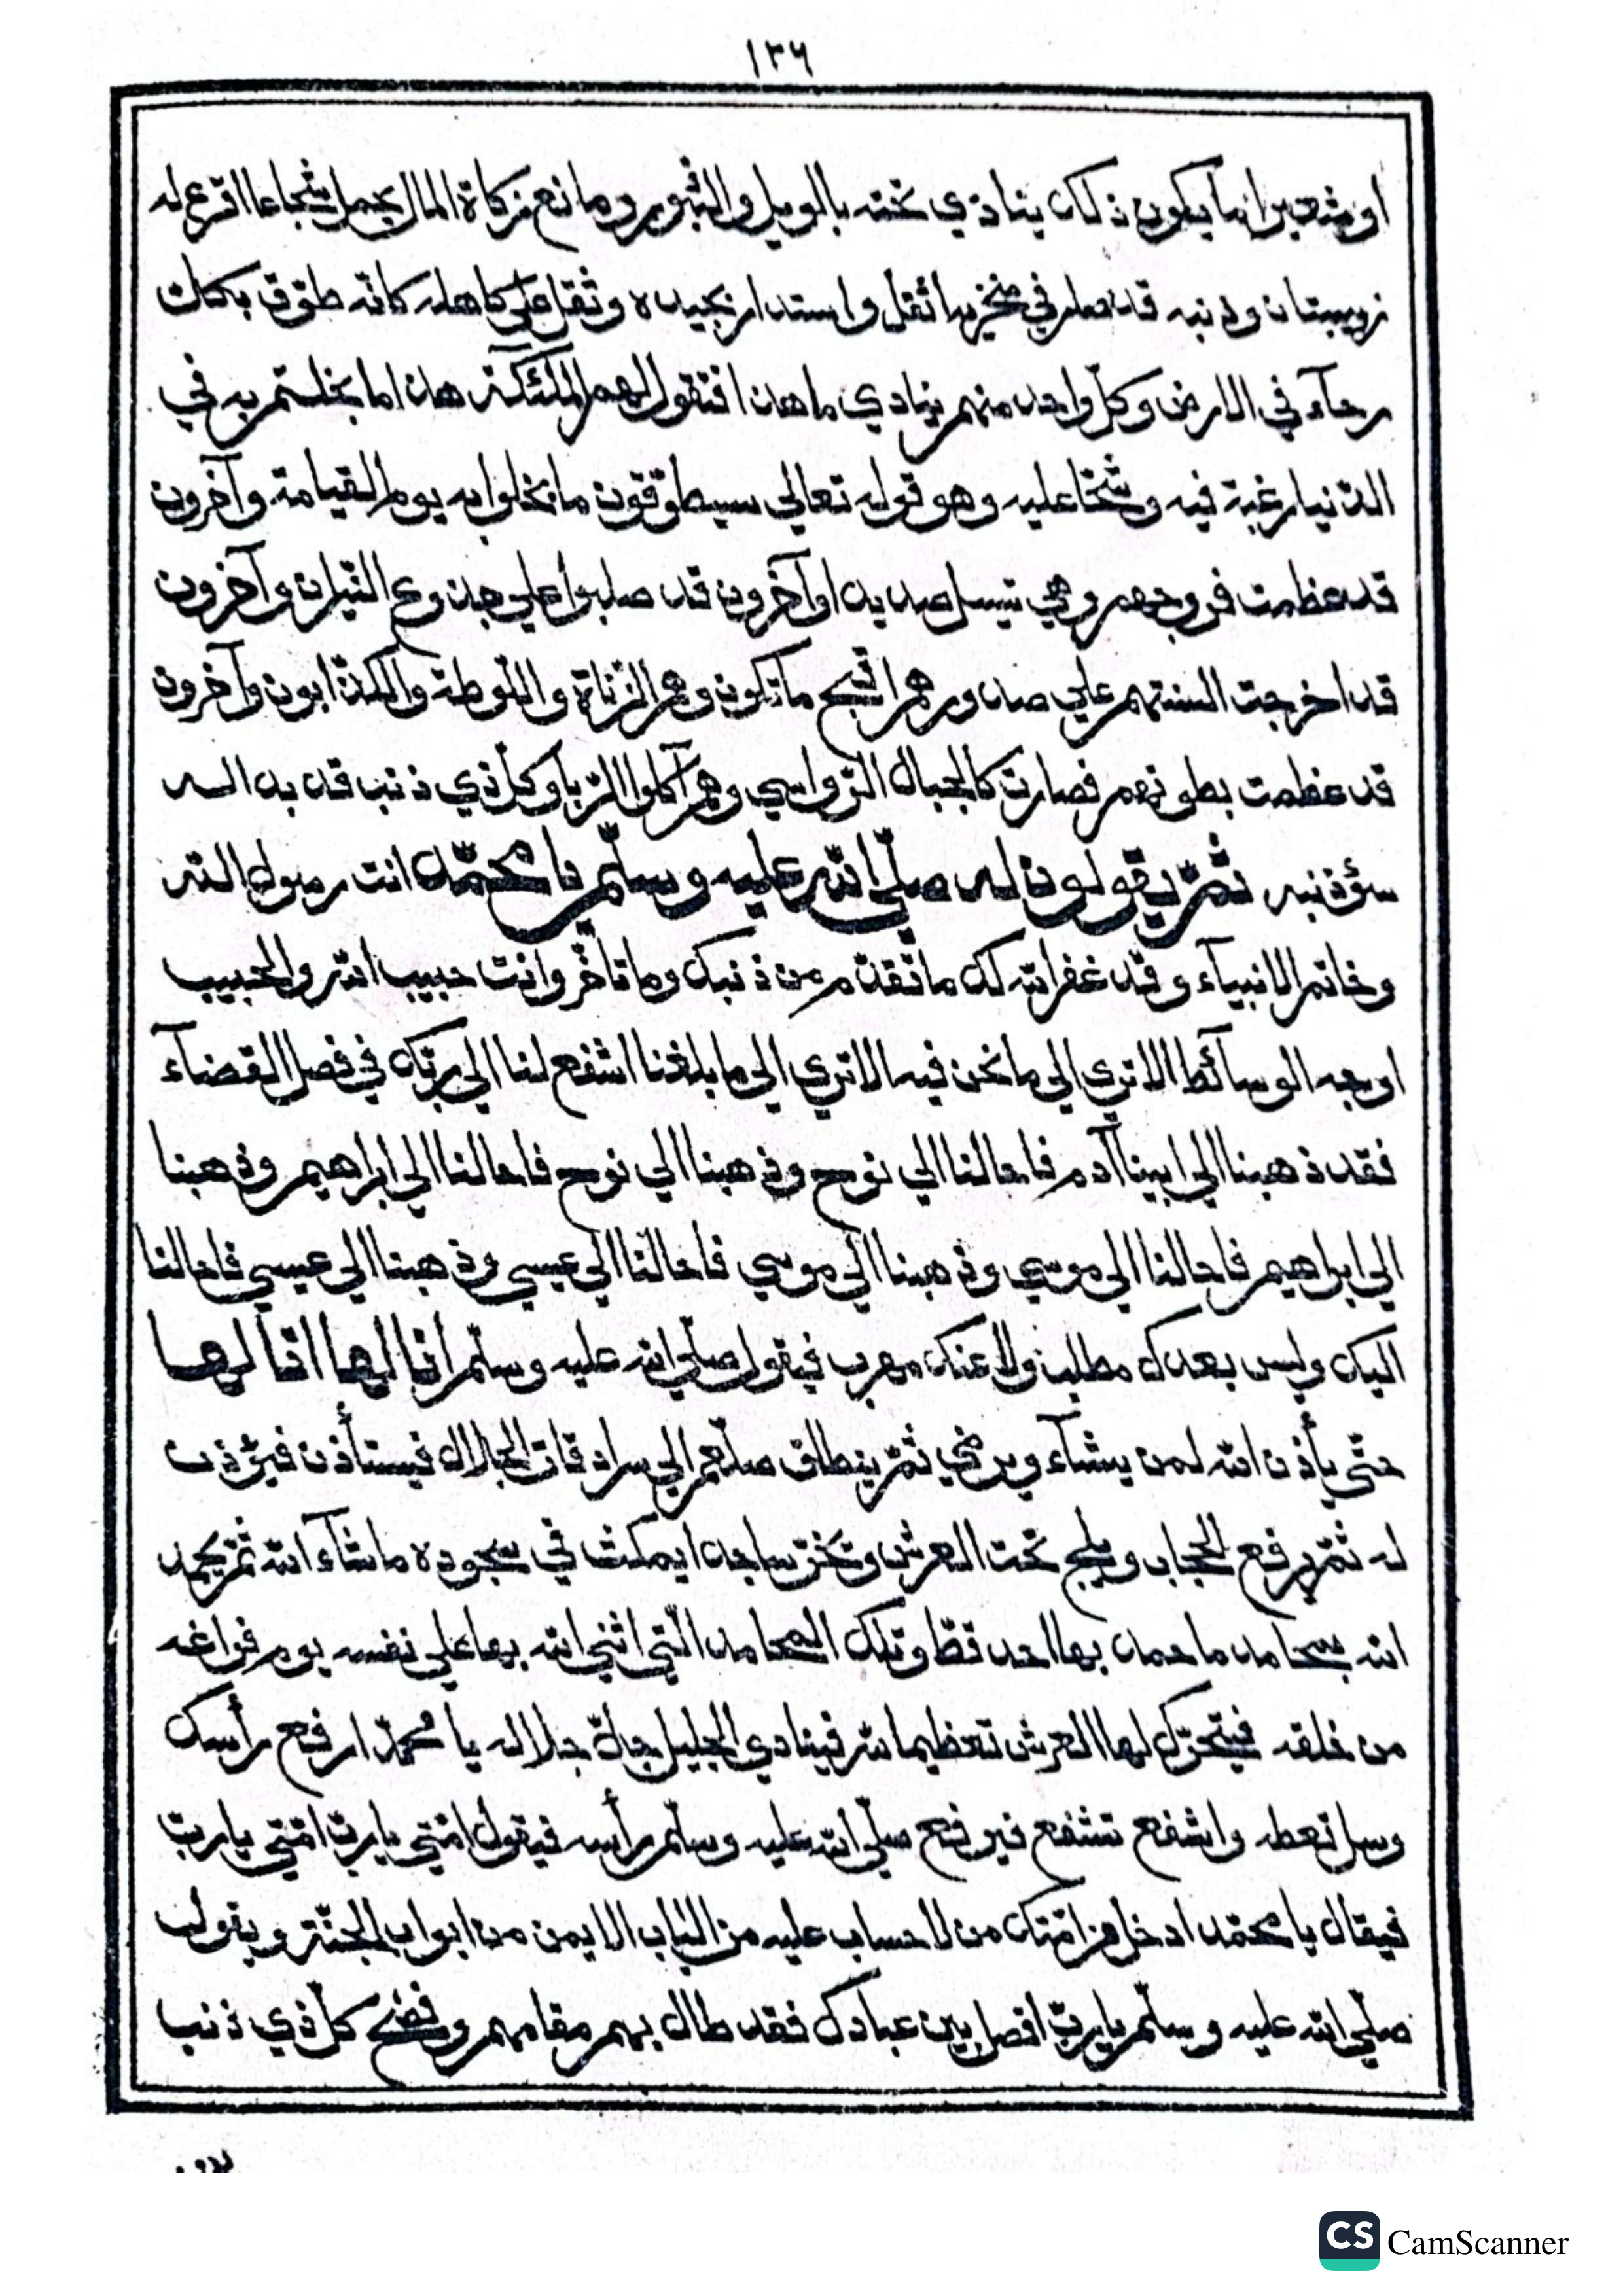 ١٢٦
او شعير انما يكون ذلك ينادي تحته بالويل والثبور ومانع زكاة المال يحمل شجاعا اقرع له
زبيبتان وذنبه قد في منخريه اثقل واستدار بجيده وثقل علي كاهله كانّه طوّق بكلّ
رحآء في الارض وكلّ واحد منهم ينادي ما هذا فتقول لهم الملئكة هذا ما بخلتم به في
الدّنيا رغبة فيه وشحّا عليه وهو قوله تعالي سيطوّقون ما بخلوا به يوم القيامة وآخرون
قد عظمت فروجهم وهي تسيل صديدا وآخرون قد صلبوا علي جذوع النّيران وآخرون
قد اخرجت السنتهم علي صدورهم اقبح ما تكون وهم الزّناة واللّوطة والكذّابون وآخرون
قد عظمت بطونهم فصارت كالجبال الرّواسي وهم آكلوا الرّبا وكلّ ذي ذنب قد بدا له
سؤ ذنبه ثمّ يقولون له صلّي اللّه عليه وسلّم يا محمّد انت رسول اللّه
وخاتم الانبيآء وقد غفر اللّه لك ما تقدّم من ذنبك وما تأخّر وانت حبيب اللّه والحبيب
اوجه الوسآئط الا تري الي ما نحن فيه الا تري الي ما بلغنا اشفع لنا الي ربّك في فصل القضآء
فقد ذهبنا الي ابينا آدم فاحالنا الي نوح وذهبنا الي نوح فاحالنا الي ابراهيم وذهبنا
الي ابراهيم فاحالنا الي موسي وذهبنا الي موسي فاحالنا الي عيسي وذهبنا الي عيسي فاحالنا
اليك وليس بعدك مطلب ولا عنك مهرب فيقول صلّي اللّه عليه وسلّم أنا لها انا لها
حتّي يأذن اللّه لمن يشآء ويرضي ثمّ ينطلق صلعم الي سرادقات الجلال فيستأذن فيؤذن
له ثمّ يرفع الحجاب ويلج تحت العرش ويخرّ ساجدا يمكث في سجوده ما شآء اللّه ثمّ يحمد
اللّه بمحامد ما حمد بها احد قطّ وتلك المحامد الّتي اثني اللّه بها علي نفسه يوم فراغه
من خلقه فيتحرّك لها العرش تعظيما للّه فينادي الجليل جلّ جلاله يا محمّد ارفع رأسك
وسل تعطه واشفع تشفع فيرفع صلّي اللّه عليه وسلّم رأسه فيقول امّتي يا ربّ امّتي يا ربّ
فيقال يا محمّد ادخل من امّتك من لا حساب عليه من الباب الايمن من ابواب الجنّة ويقول
صلّي اللّه عليه وسلّم يا ربّ افصل بين عبادك فقد طال بهم مقامهم وفضح كلّ ذي ذنب
CS CamScanner